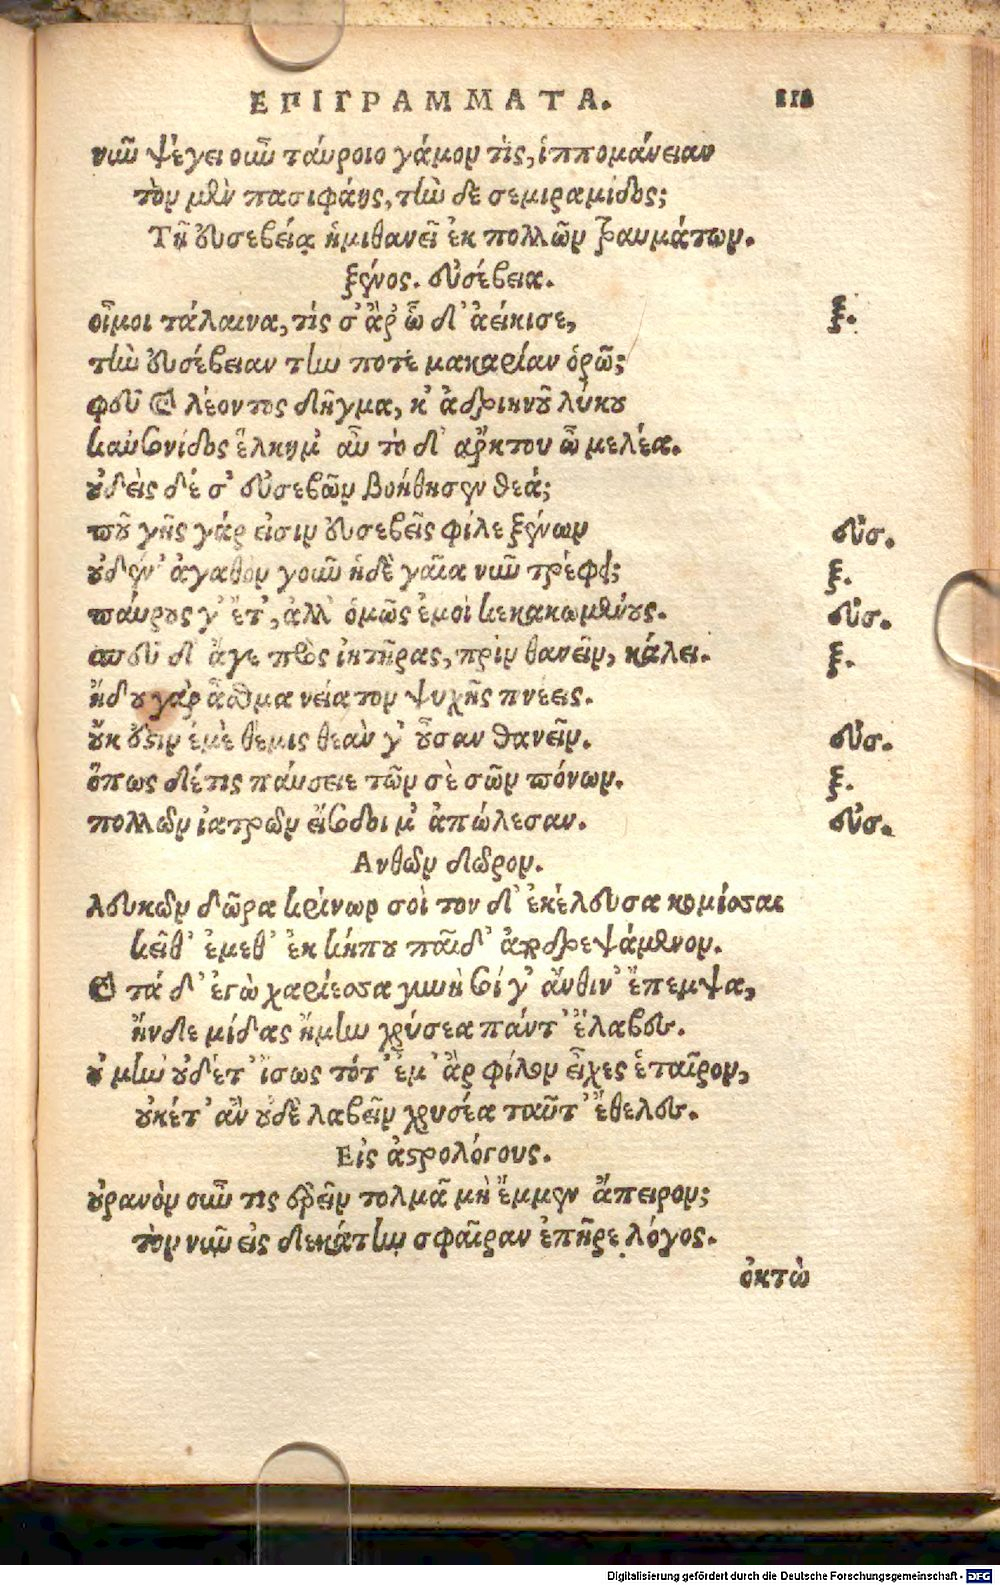 ΕΠΙΓΡΑΜΜΑΤΑ. 118
νιῦ ψέγει οιῶ ταύροιο γάμον τὶς, ἱππομάνειαν
τὸν μὲν πασιφάης, τιὼ δὲ σεμιραμίδος;
Τῇ Ευσεβείᾳ ἡμιθανεῖ ἐκ πολλῶν τραυμάτων.
ξένος. εὐσέβεια.
οἴμοι τάλαινα, τίς σ' ἂρ ὧδ' ἀείκισε, ξ.
τιὼ ευσέβειαν τίω ποτὲ μακαρίαν ὁρῶ;
φεῦ καὶ λέοντος δῆγμα, κ' ἀδριηνοῦ λύκου
καυσνίδος ἕλκημ' αὖ τὸ δ' ἄρκτου ὦ μελέα.
οὐδεὶς δέ σ' εὐσεβῶν βοήθησεν θεά;
ποῦ γῆς γάρ εἰσιν ευσεβεῖς φίλε ξένων εὐσ.
οὐδέν' ἀγαθὸν γοιῶ ἡδὲ γαῖα νιῦ τρέφει; ξ.
παύρους γ' ἔτ', ἀλλ' ὁμῶς ἐμοὶ κεκακωμένους. εὐσ.
σπεῦδ' ἄγε πρὸς ἰητῆρας, πρὶν θανεῖν, κάλει. ξ.
ἤδη γὰρ ἆσθμα νείατον ψυχῆς πνέεις.
οὔκουν ἐμὲ θέμις θεὰν γ' οὖσαν θανεῖν. εὐσ.
ὅπως δέ τις παύσειε τῶν σὲ σῶν πόνων. ξ.
πολλῶν ἰατρῶν εἴσοδοι μ' ἀπώλεσαν. εὐσ.
Ανθῶν δῶρον.
λευκῶν δῶρα κρίνων σοὶ τὸν δ' ἐκέλευσα κομίσσαι
κεῖθ' ἐμέθ' ἐκ κήπου παῖδ' ἀποδρεψάμενον.
καὶ τά δ' ἐγὼ χαρίεσσα γυνὴ σοί γ' ἄνθιν' ἔπεμψα,
ἤνδε μίδας ἤμιω χρύσεα πάντ' ἔλαβες.
οὐ μίω οὐδέτ' ἴσως τότ' ἐμ' ἂρ φίλον εἶχες ἑταῖρον,
οὐκέτ' ἂν οὐδὲ λαβεῖν χρυσέα ταῦτ' ἔθελες.
Εἰς ἀστρολόγους.
οὐρανὸν οιῶ τις εὑρεῖν τολμᾶ μὴ ἔμμεν ἄπειρον;
τὸν νιῦ εἰς δεκάτιω σφαῖραν ἐπῆρε λόγος.
ὀκτὼ
Digitalisierung gefördert durch die Deutsche Forschungsgemeinschaft - DFG